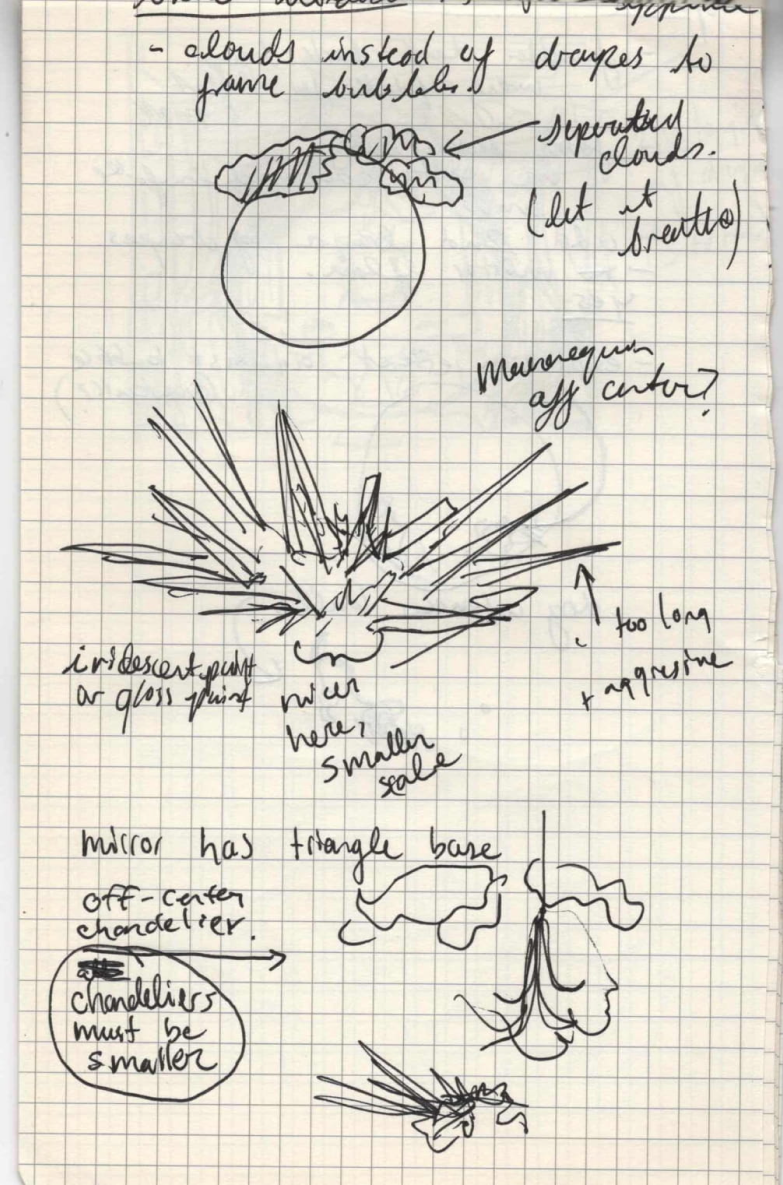 - clouds instead of drapes to
frame bubbles.
seperated
clouds.
(let it
breathe)
Mannequin
off center?
too long
+ aggresive
iridescent paint
or gloss paint
nicer
here,
smaller
scale
mirror has triangle base
off-center
chandelier.
chandeliers
must be
smaller